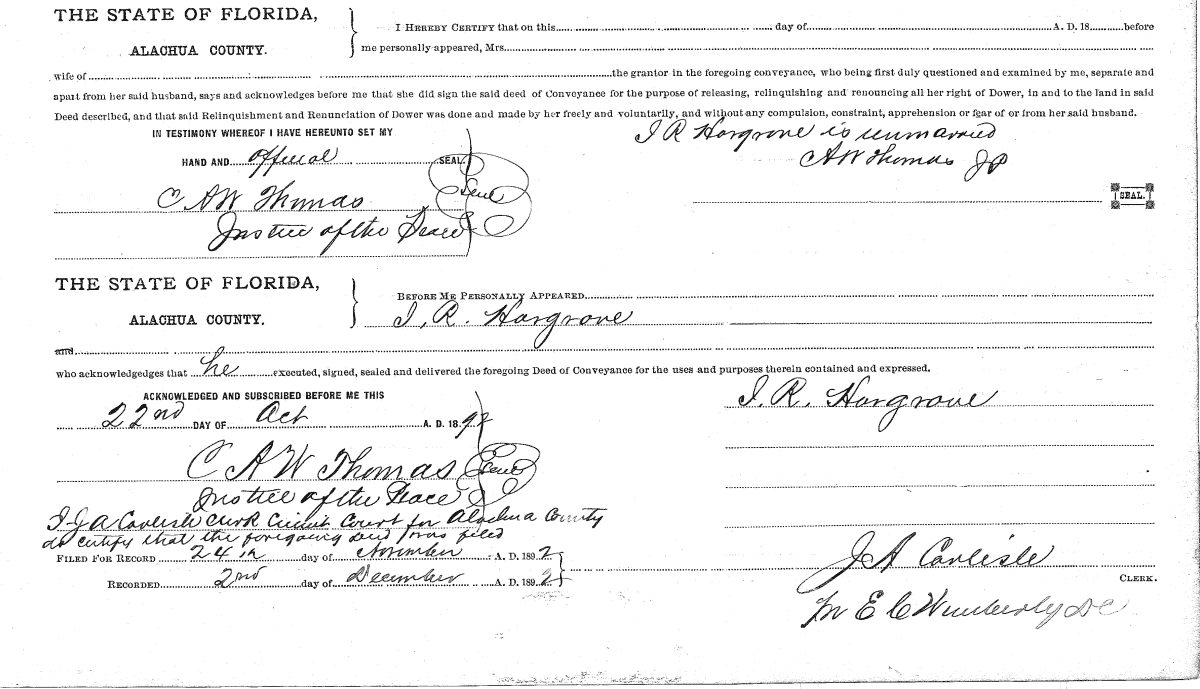 THE STATE OF FLORIDA,
ALACHUA COUNTY.
I HEREBY CERTIFY that on this day of A. D. 18 before
me personally appeared, Mrs.
wife of the grantor in the foregoing conveyance, who being first duly questioned and examined by me, separate and
apart from her said husband, says and acknowledges before me that she did sign the said deed of Conveyance for the purpose of releasing, relinquishing and renouncing all her right of Dower, in and to the land in said
Deed described, and that said Relinquishment and Renunciation of Dower was done and made by her freely and voluntarily, and without any compulsion, constraint, apprehension or fear of or from her said husband.
IN TESTIMONY WHEREOF I HAVE HEREUNTO SET MY
HAND AND official SEAL.
C A W Thomas Seal
Justice of the Peace
I R Hargrove is unmarried
C A W Thomas J P
SEAL.
THE STATE OF FLORIDA,
ALACHUA COUNTY.
BEFORE ME PERSONALLY APPEARED
I. R. Hargrove
and
who acknowledgedges that he executed, signed, sealed and delivered the foregoing Deed of Conveyance for the uses and purposes therein contained and expressed.
ACKNOWLEDGED AND SUBSCRIBED BEFORE ME THIS
22nd DAY OF Oct A. D. 1892
C A W Thomas Seal
Justice of the Peace
I. R. Hargrove
I J A Carlisle Clerk Circuit Court for Alachua County
do certify that the foregoing deed was filed
FILED FOR RECORD 24th day of November A. D. 1892
RECORDED 2nd day of December A. D. 1892
J A Carlisle
CLERK.
Pr E C Wimberly DC